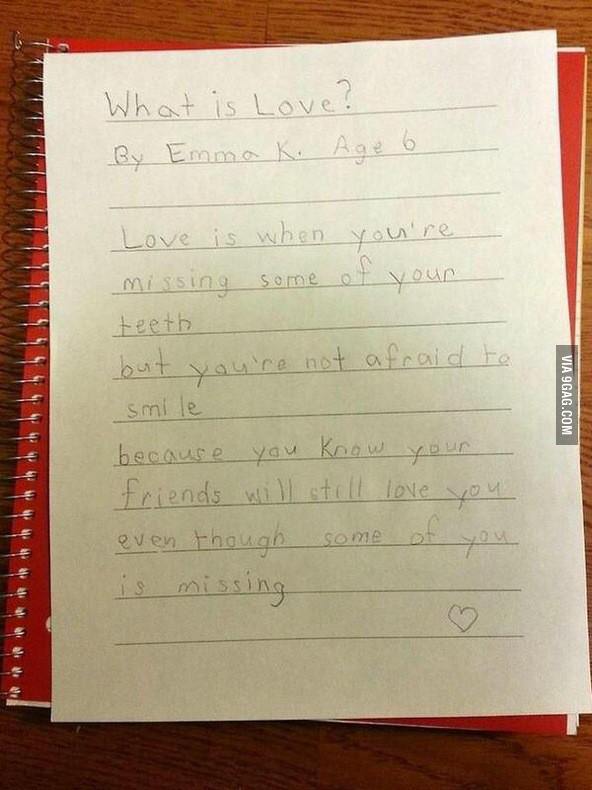 What is Love?
By Emma K. Age 6
Love is when you're
missing some of your
teeth
but you're not afraid to
smile
because you know your
friends will still love you
even though some of you
is missing
VIA 9GAG.COM